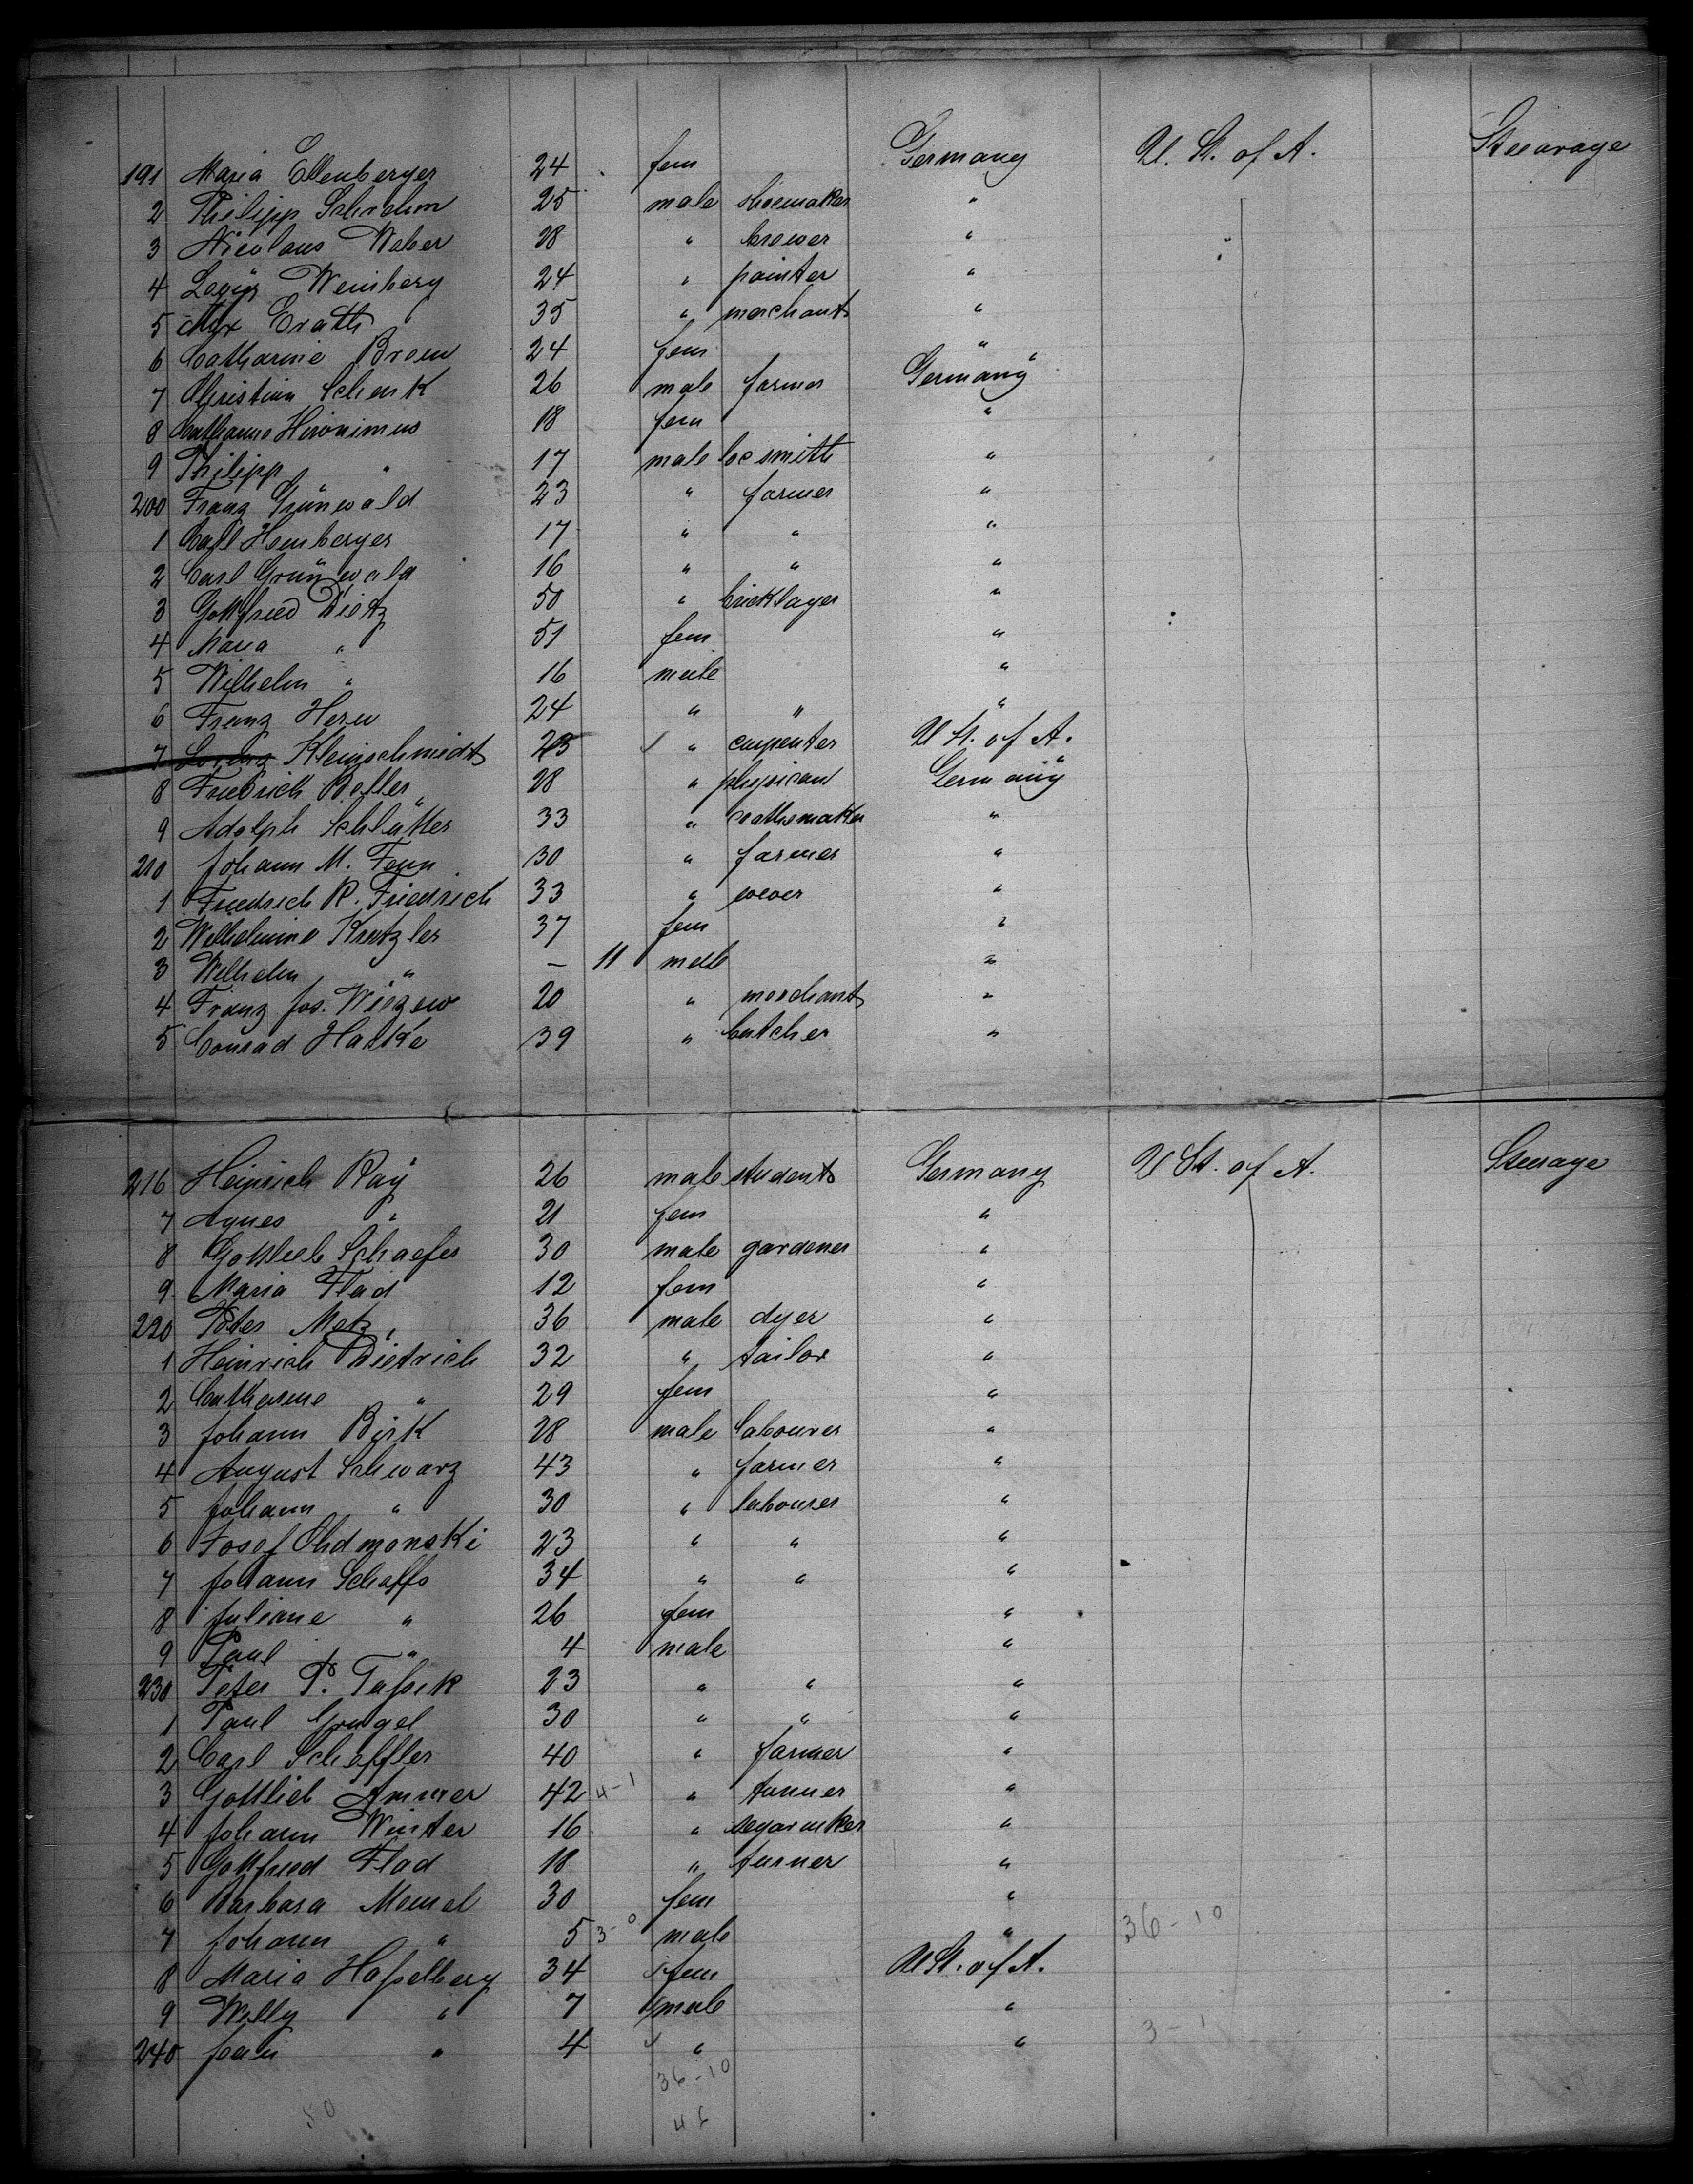 191 Maria Ellenberger 24 fem Germany U. St. of A. Steerage
2 Philipp Schrehm 25 male shoemaker "
3 Nicolaus Weber 28 " brewer "
4 Weinberg 24 " painter "
5 Erath 35 " merchant "
6 Catharine Breu 24 fem "
7 Christian Schenk 26 male farmer Germany
8 Catharine Hironimus 18 fem "
9 Philipp " 17 male locsmith "
200 Franz Grünwald 23 " farmer "
1 Carl Hemberger 17 " " "
2 Carl Grünwald 16 " " "
3 Gottfried Dietz 50 " bricklayer "
4 Maria " 51 fem "
5 Wilhelm " 16 male "
6 Franz Heru 24 " " "
7 Kleinschmidt 25 " carpenter U St. of A.
8 Friedrich Beller 28 " physican Germany
9 Adolph Schlütter 33 " "
210 Johann M. Fenn 30 " farmer "
1 Friedrich R. Friedrich 33 " wever "
2 Wilhelmine Kretzler 37 fem "
3 Wilhelm " - 11 male "
4 Franz Jos. 20 " merchant "
5 Conrad Hatke 39 " butcher "
216 Heinrich Ray 26 male student Germany U St. of A. Steerage
7 Agnes " 21 fem "
8 Gottlieb Schaefer 30 male gardener "
9 Maria Flad 12 fem "
220 Peter Metz 36 male dyer "
1 Heinrich Dietrich 32 " tailor "
2 Catharine " 29 fem "
3 Johann Birk 28 male labourer "
4 August Schwarz 43 " farmer "
5 Johann " 30 " labourer "
6 Josef 23 " " "
7 Johann Schaffs 34 " " "
8 Juliane " 26 fem "
9 Paul " 4 male "
230 Peter P. 23 " " "
1 Paul Grugel 30 " " "
2 Carl Scheffler 40 " farmer "
3 Gottlieb Ammer 42 4-1 " tanner "
4 Johann Winter 16 " segarmker "
5 Gottfried Flad 18 " turner "
6 Barbara Mensel 30 fem "
7 Johann " 5 3-0 male " 36-10
8 Maria Haßelberg 34 fem U St. of A.
9 Willy " 7 male "
240 " 4 " " 3-1
36-10
50 46